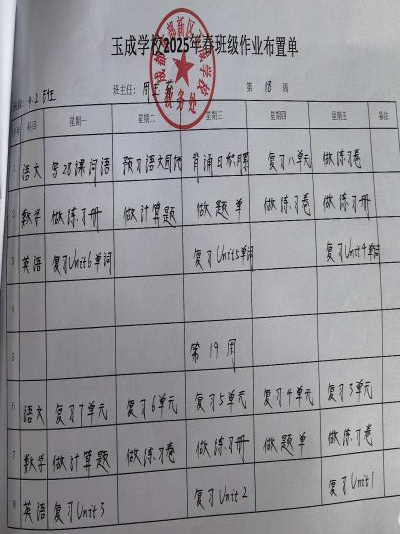 玉成学校2025年春班级作业布置单
4.2 班 班主任: 第 18 周
科目 星期一 星期二 星期三 星期四 星期五 备注
语文 写28课词语 预习语文园地 背诵日积月累 复习八单元 做练习卷
2 数学 做练习册 做计算题 做题单 做练习卷 做练习册
3 英语 复习Unit6单词 复习Unit5单词 复习Unit4单词
4
5 第19周
6 语文 复习7单元 复习6单元 复习5单元 复习4单元 复习3单元
7 数学 做计算题 做练习卷 做练习册 做题单 做练习卷
8 英语 复习Unit3 复习Unit2 复习Unit1
教务处